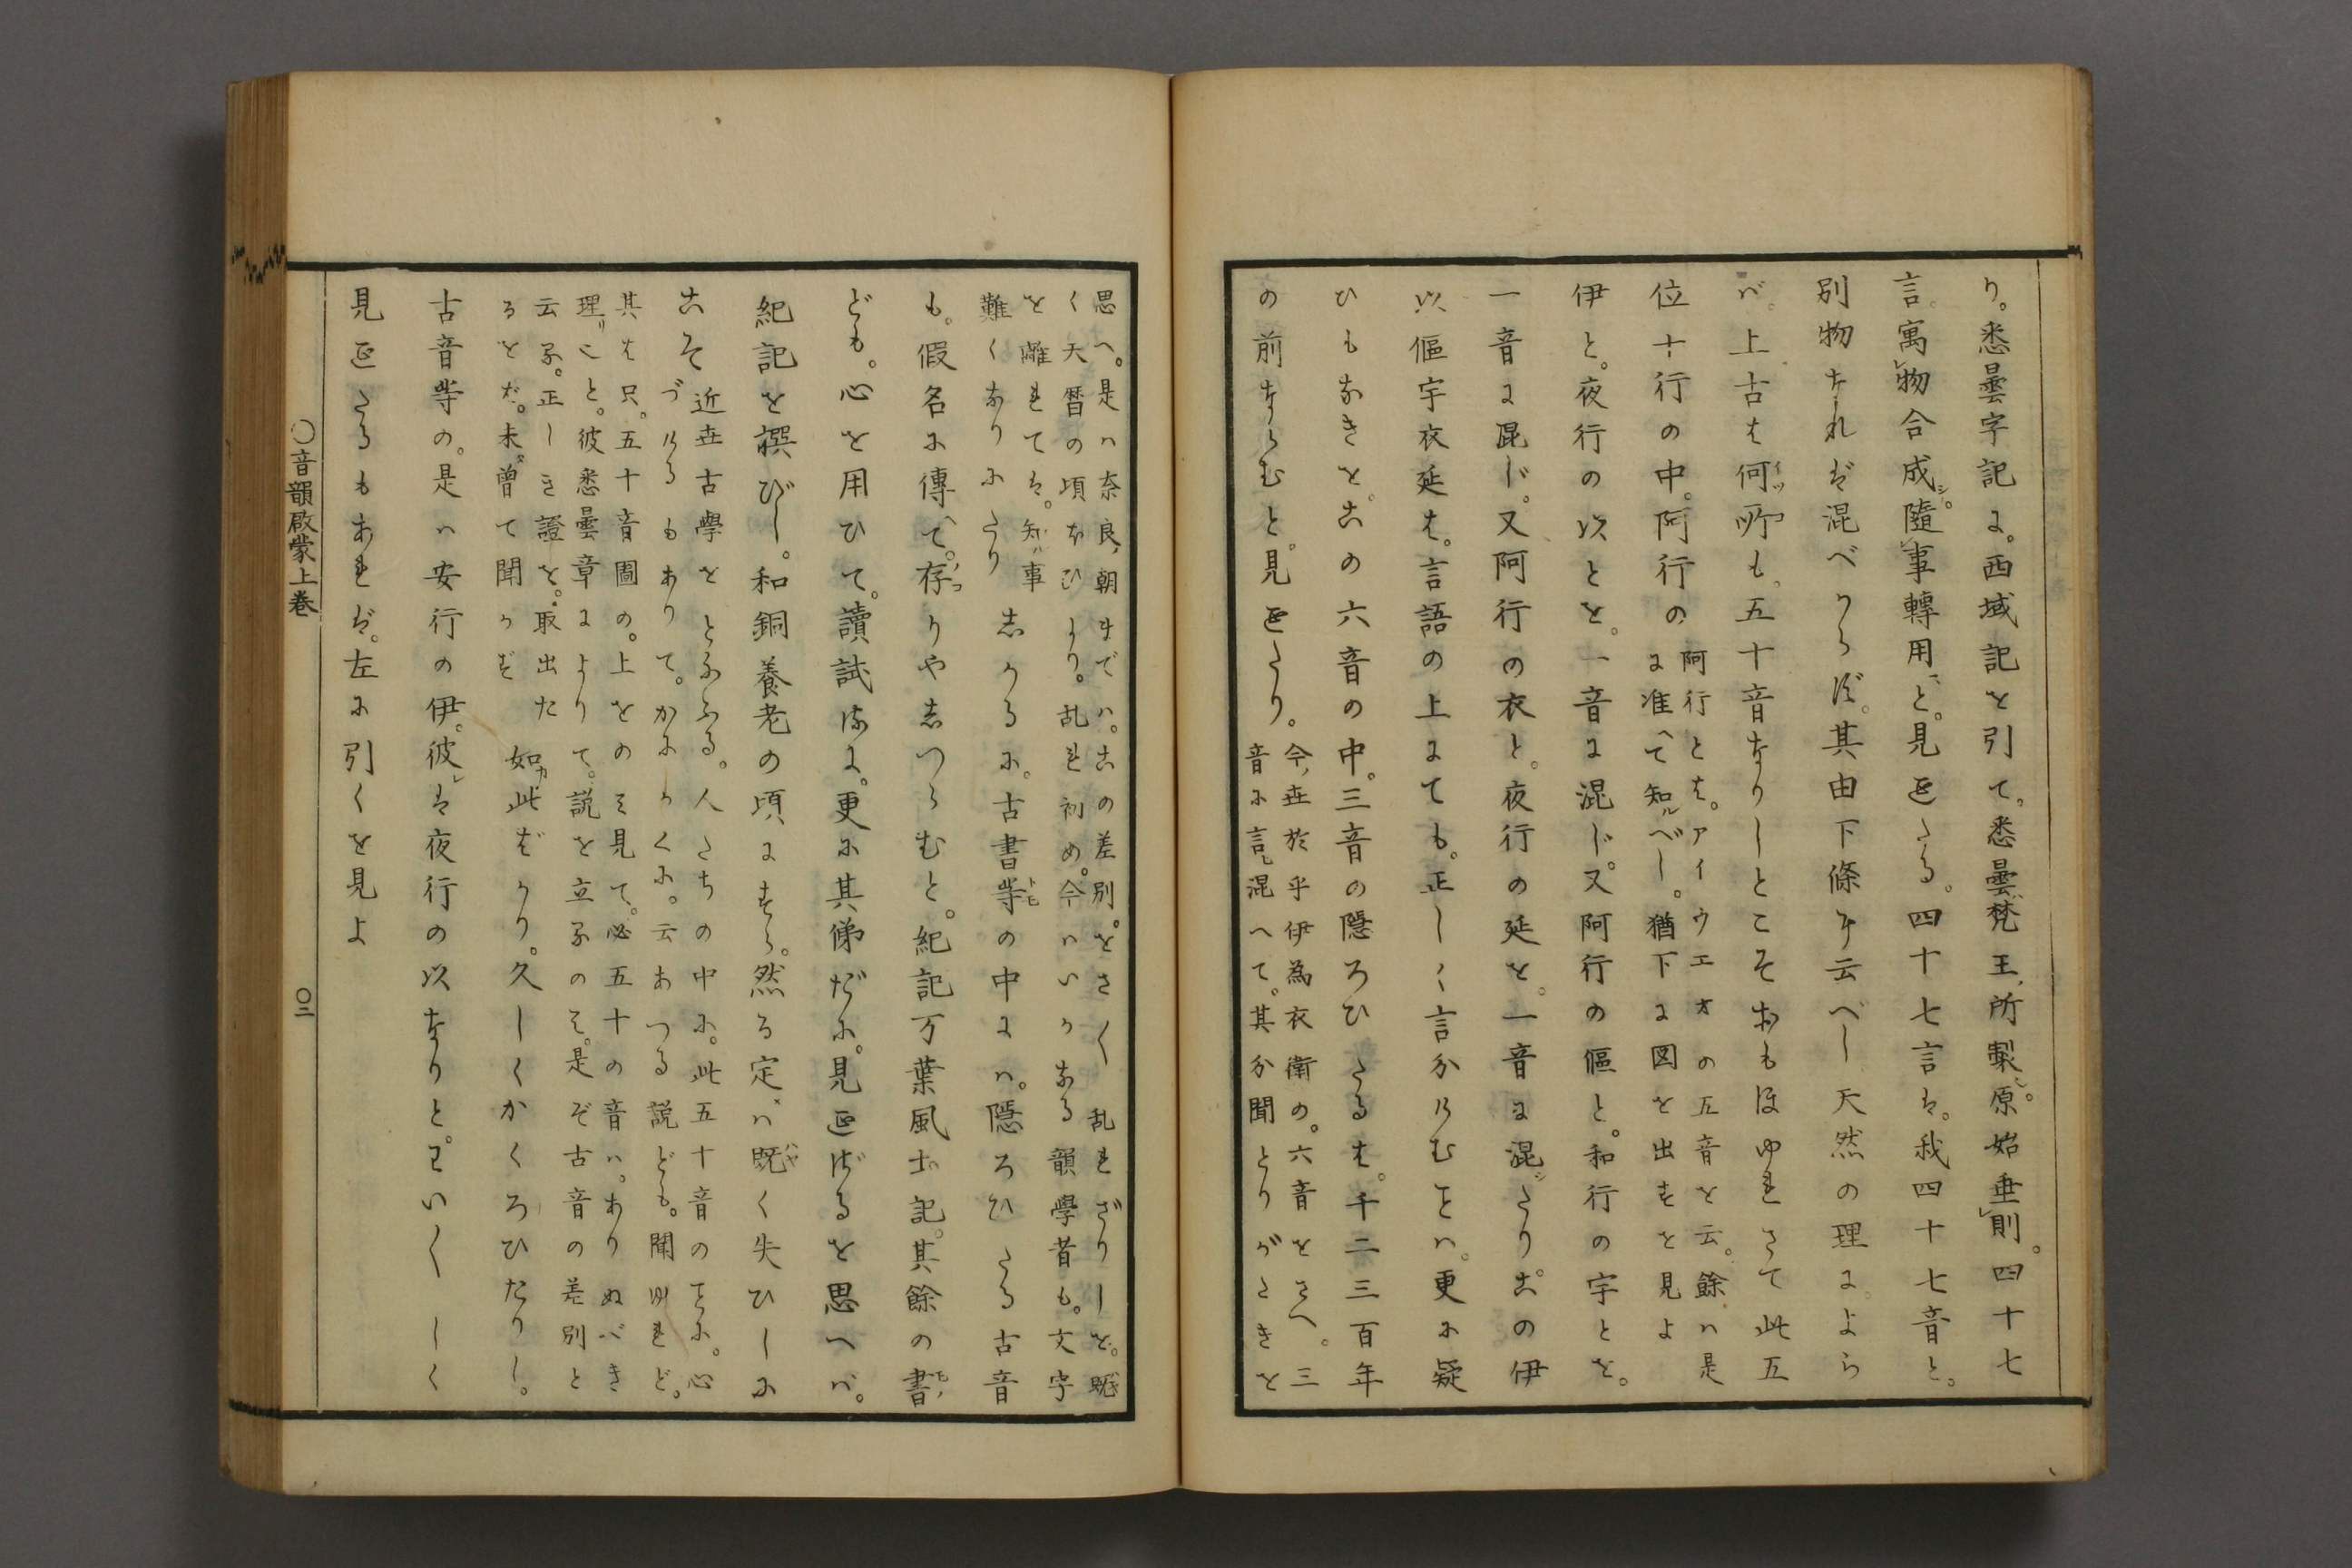 り。悉曇字記に。西域記を引て。悉曇。梵王所製。原始垂則。四十七
言。寓物合成。隨事轉用。と。見𛀁たる。四十七言は。我四十七音と。
別物なれば混べからず。其由下條に云べし天然の理によら
ば。上古は何所も。五十音なりしとこそおもほゆれさて此五
位十行の中。阿行の
阿行とは。アイウエオの五音を云。餘は是
に准へて知べし。猶下に図を出すを見よ
伊と。夜行の以とを。一音に混じ。又阿行の傴と。和行の宇とを。
一音に混じ。又阿行の衣と。夜行の延を。一音に混じたり。古の伊
以傴宇衣延は。言語の上にても。正しく言分けむことは。更に疑
ひもなきを。古の六音の中。三音の隠ろひたるは。千二三百年
の前ならむと。見𛀁たり。
今世於乎伊為衣衛の。六音をさへ。三
音に言混へて。其分聞とりがたきを
思へ。是は奈良朝までは。古の差別をさ〱乱れざりしを。既
く天暦の頃おひより。乱れ初め。今はいかなる韻學者も。文字
を離れては。知事
難くなりにたり
しかるに。古書等の中には。隠ろひたる古音
も。假名に傳て。存りやしつらむと。紀記万葉風土記。其餘の書
ども。心を用ひて。讀試るに。更に其俤だに。見𛀁ざるを思へば。
紀記を撰びし。和銅養老の頃にすら。然る定は既く失ひしに
こそ
近世古學をとなふる。人たちの中に。此五十音のことに。心
づけるもありて。かにかくに。云おつる説ども。聞ゆれど。
其は只。五十音圖の。上をのみ見て。必五十の音は。ありぬべき
理こと。彼悉曇章によりて。説を立るのみ。是ぞ古音の差別と
云る。正しき證を。取出た
るをば。未曾て聞かず
如此ばかり。久しくかくろひたりし。
古音等の。是は安行の伊。彼は夜行の以なりと。いと〱しく
見𛀁たるもあれば。左に引くを見よ
○音韻啟蒙上巻
○三